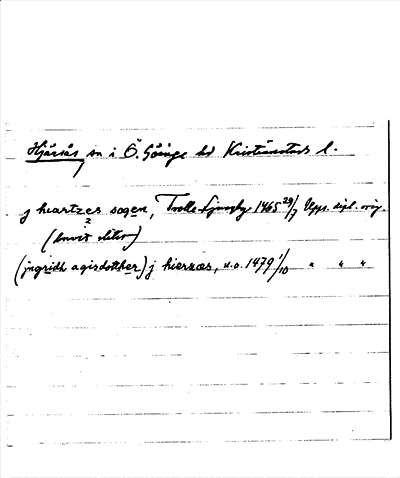 Hjärsås sn i Ö. Göinge hd Kristianstads l.
j hiartzes sogen, Trolle-Ljungby 1465 29/7 Upps. dipl. orig.
2
(
(jngridh agisdotther) j hierzæs, u.o. 1479 1/10 " " "